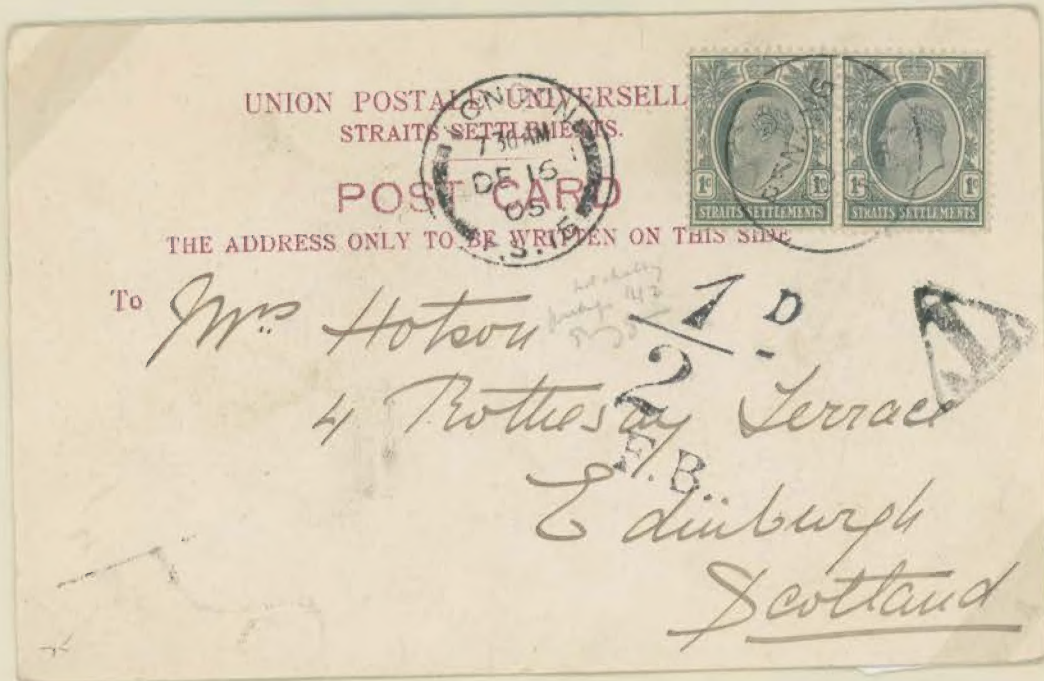 UNION POSTALE UNIVERSELL
STRAITS SETTLEMENTS.
POST CARD
THE ADDRESS ONLY TO BE WRITTEN ON THIS SIDE
7 30 AM
DE 15
05
1c 1c
STRAITS SETTLEMENTS
1c 1c
STRAITS SETTLEMENTS
To Mrs Hotson
4 Rothesay Terrace
Edinburgh
Scotland
1/2 D
F.B.
T